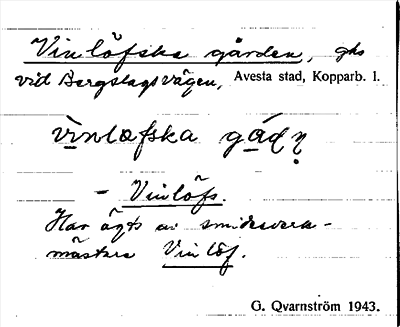 Vinlöfska gården, ghs
vid Bergslagsvägen, Avesta stad, Kopparb. l.
vi̱nlœfska gá̱ḍṇ
– Vinlöfs.
Har ägts av smidesverk-
mästare Vinlöf.
G. Qvarnström 1943.